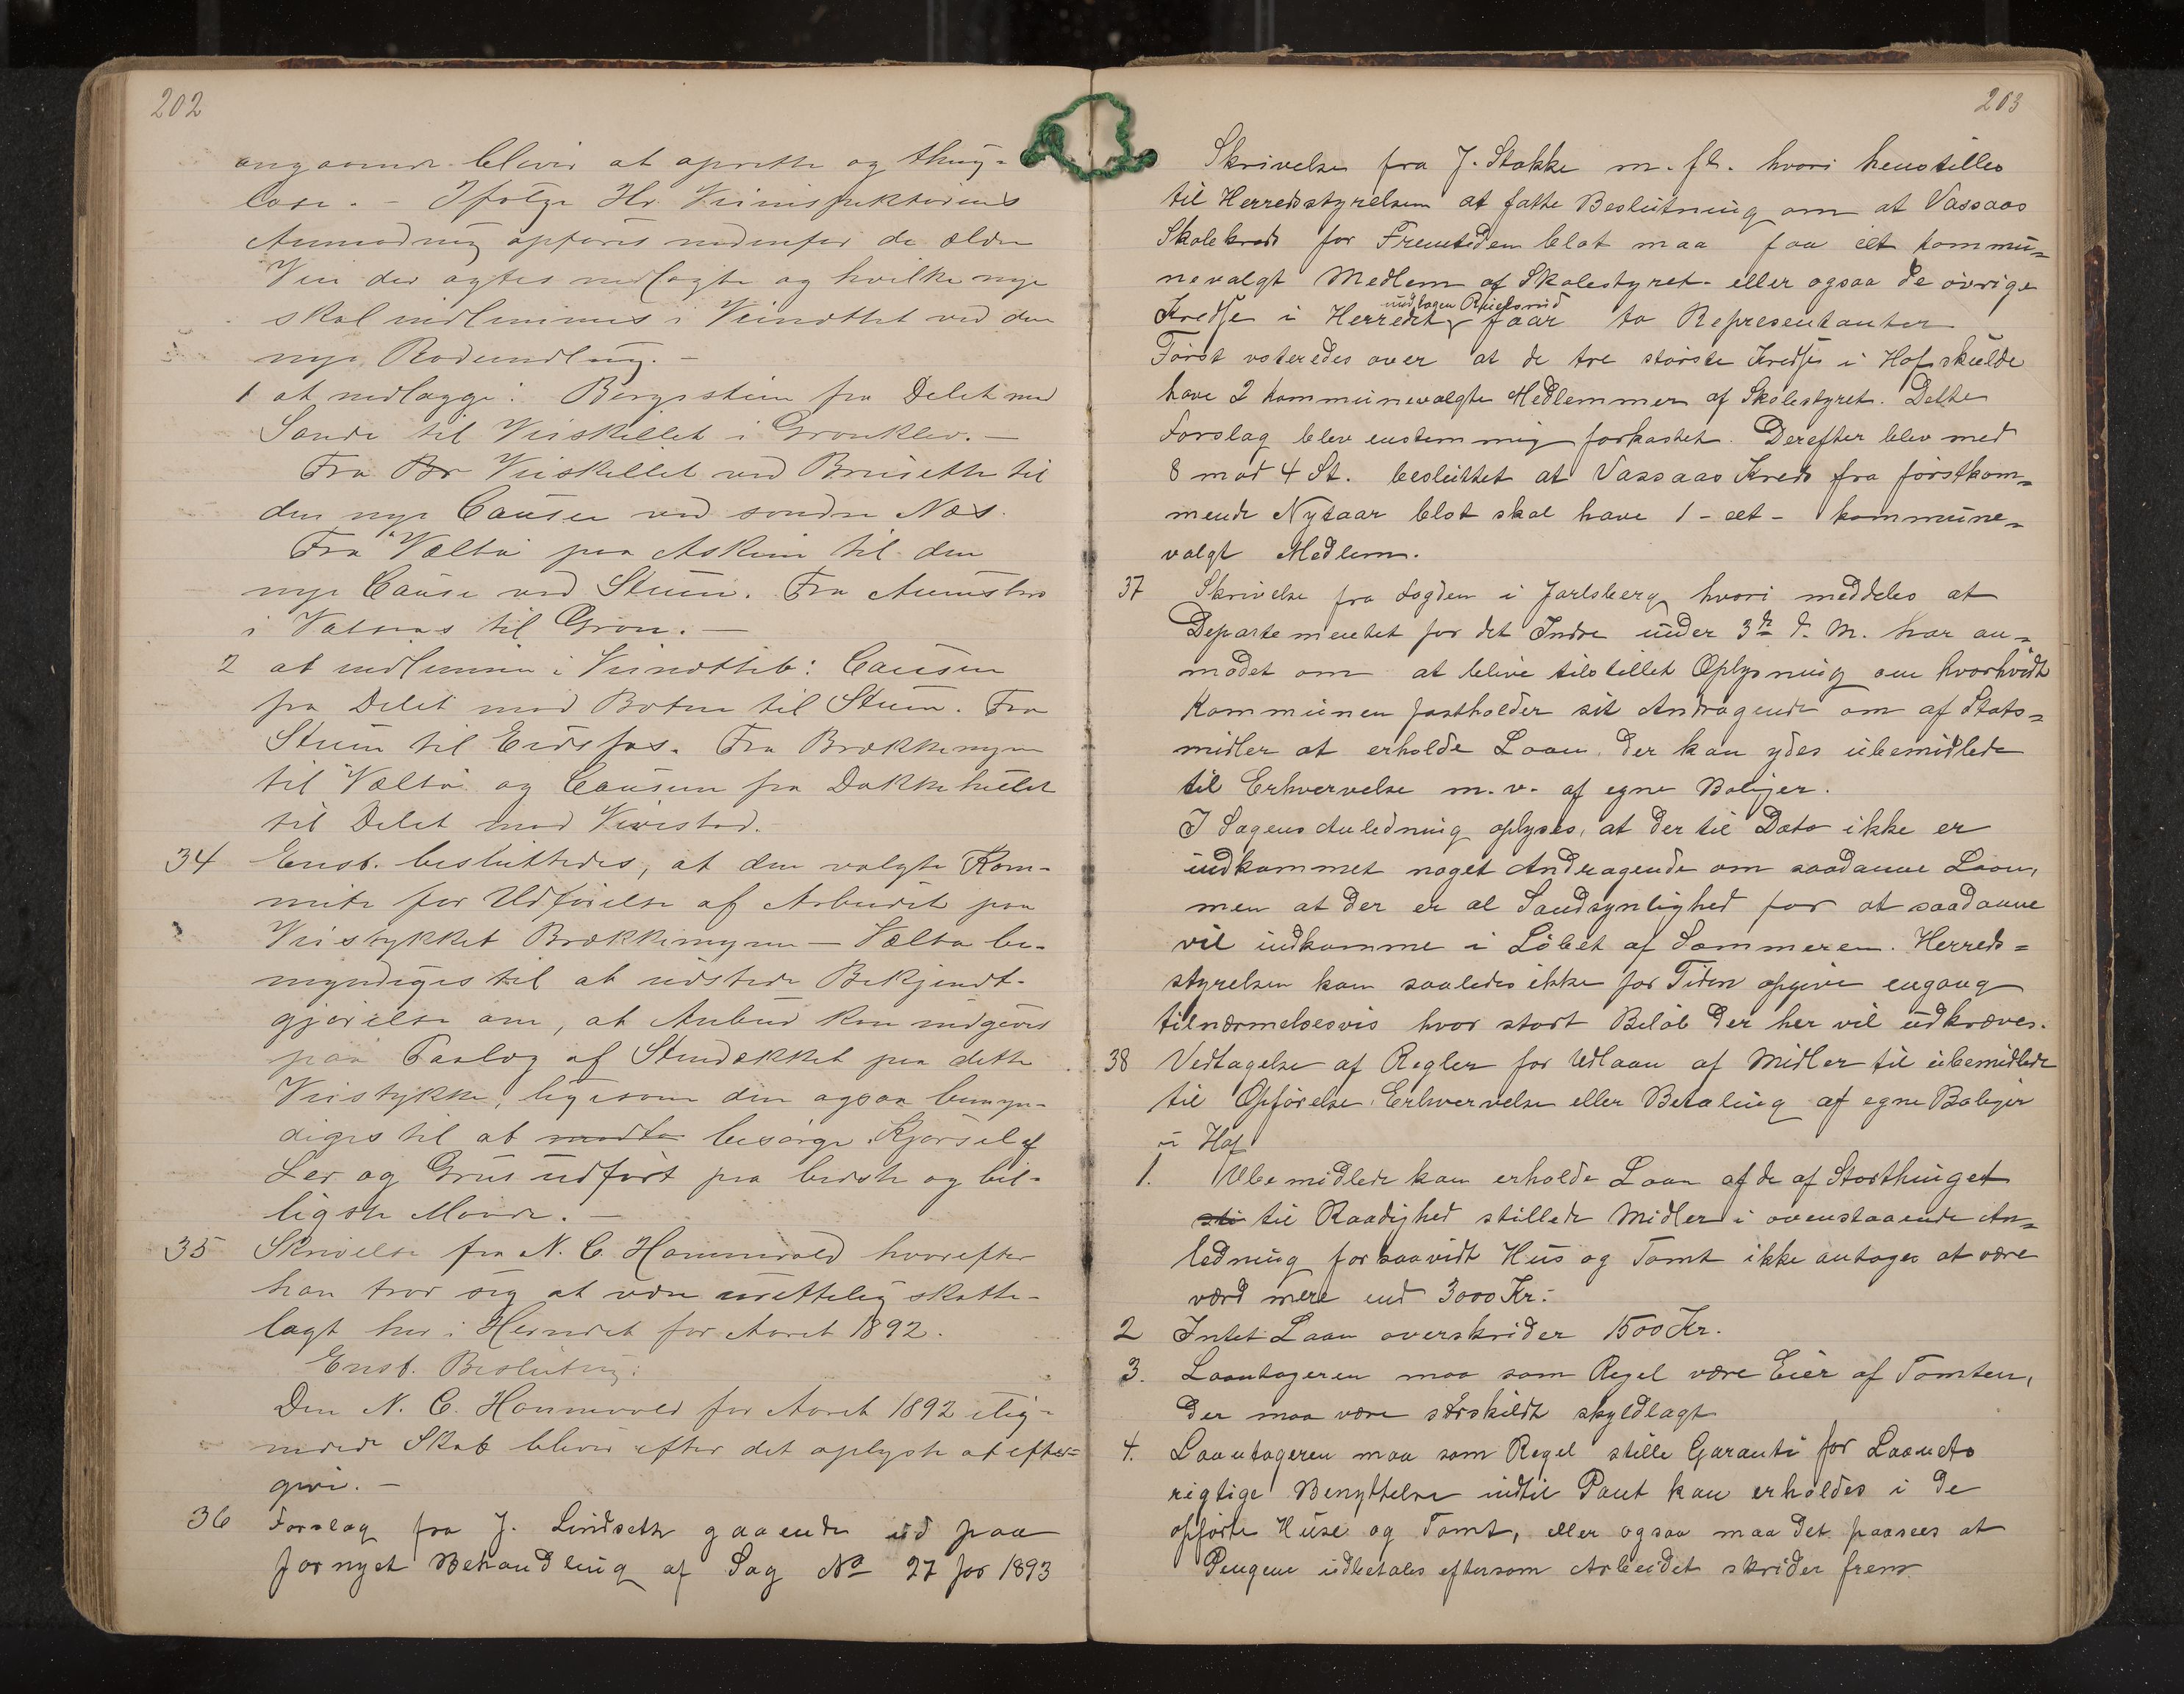 202
angaaende bliver at oprette og thing-
læse. - Ifølge Hr. Veiinspektørens
Anmodning opføres nedenfor de ældre
Veie der agtes nedlagte og hvilke nye
skal indlemmes i Veinættet ved den
nye Rodeindling. -
1 at nedlægge: Bergsstien fra Delet med
Sande til Veiskillet i Grønklev. -
Fra Br Veiskillet ved Bruseth til
den nye Causee ved søndre Næs.
Fra Vælta paa Askim til den
nye Cause ved Steen. Fra
i Vatnaas til Gron. -
2 at indlemme i Veinættet: Causeen
fra Delet mod Botne til Steen. Fra
Steen til Eidsfos. Fra Brækkemyren
til Vælta og Causeen fra Dokkehullet
til Delet mod Vivestad.
34 Enst. besluttedes, at den valgte Kom-
mite for Udførelse af Arbeidet paa
Veistykket Brækkemyren - Vælta be-
myndiges til at udstede Bekjendt-
gjørelse om, at Anbud kan indgives
paa Paalæg af Stendækket paa dette
Veistykke, ligesom den ogsaa bemyn-
diges til at modta besørge Kjørsel af
Ler og Grus udført paa bedste og bil-
ligste Maade. -
35 Skrivelse fra N. C. Hammerald hvorefter
han tror sig at være urettelig skatte-
lagt her i Herredet for Aaret 1892.
Enst. Beslutning:
Den N. C. Hammerald for Aaret 1892 ilig-
nede Skat bliver efter det oplyste at efter-
give. -
36 Forslag fra J. Lindseth gaaende ud paa
fornyet Behandling af Sag No 27 for 1893
203
Skrivelse fra J. Stokke m. fl. hvori henstilles
til Herredsstyrelsen at fatte Beslutning om at Vassaas
Skolekreds for Fremtiden blot maa faa èt kommu-
nevalgt Medlem af Skolestyret eller ogsaa de øvrige
undtagen
Kredse i Herredet faar to Representanter
Først voteredes over at de tre største Kredse i Hof skulde
have 2 kommunevalgte Medlemmer af Skolestyret. Dette
Forslag blev enstemmig forkastet. Derefter blev med
8 mod 4 St. besluttet at Vassaas Kreds fra førstkom-
mende Nytaar blot skal have 1 - et - kommune-
valgt Medlem.
37 Skrivelse fra Fogden i Jarlsberg hvori meddeles at
Departementet for det Indre under 3de d. M. har an-
modet om at blive tilstillet Oplysning om hvorhvidt
Kommunen fastholder sit Andragende om af Stats-
midler at erholde Laan der kan ydes ubemidlede
til Erhvervelse m. v. af egne Boliger.
I Sagens Anledning oplyses, at der til Dato ikke er
indkommet noget Andragende om saadanne Laan,
men at der er al Sandsynlighed for at saadanne
vil indkomme i Løbet af Sommeren. Herreds-
styrelsen kan saaledes ikke for Tiden opgive engang
tilnærmelsesvis hvor stort Beløb der her vil udkræves.
38 Vedtagelse af Regler for Udlaan af Midler til ubemidlede
til Opførelse, Erhvervelse eller Betaling af egne Boliger
i Hof
1. Ubemidlede kan erholde Laan af de af Storthinget
sti til Raadighed stillede Midler i ovenstaaende An-
ledning forsaavidt Hus og Tomt ikke antages at være
værd mere end 3000 Kr.
2 Intet Laan overskrider 1500 Kr.
3. Laantageren maa som Regel være Eier af Tomten,
der maa være særskildt skyldlagt
4. Laantageren maa som Regel stille Garanti for Laanets
rigtige Benyttelse indtil Pant kan erholdes i de
opførte Huse og Tomt, eller ogsaa maa det paasees at
Pengene udbetales eftersom Arbeidet skrider frem.